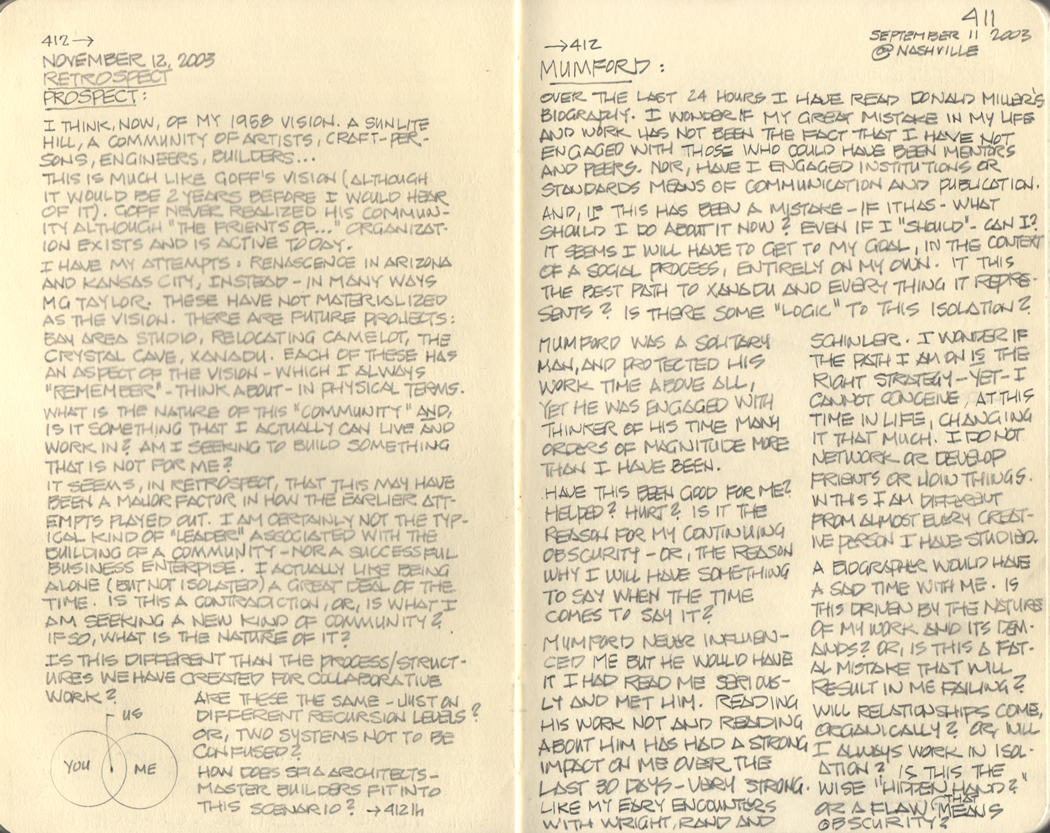 412→
NOVEMBER 12, 2003
RETROSPECT
PROSPECT:
I THINK, NOW, OF MY 1958 VISION. A SUNLITE
HILL, A COMMUNITY OF ARTISTS, CRAFT-PER-
SONS, ENGINEERS, BUILDERS...
THIS IS MUCH LIKE GOFF'S VISION (ALTHOUGH
IT WOULD BE 2 YEARS BEFORE I WOULD HEAR
OF IT). GOFF NEVER REALIZED HIS COMMUN-
ITY ALTHOUGH "THE FRIENTS OF..." ORGANIZAT-
ION EXISTS AND IS ACTIVE TODAY.
I HAVE MY ATTEMPTS: RENASCENCE IN ARIZONA
AND KANSAS CITY, INSTEAD - IN MANY WAYS
MG TAYLOR. THESE HAVE NOT MATERIALIZED
AS THE VISION. THERE ARE FUTURE PROJECTS:
BAY AREA STUDIO, RELOCATING CAMELOT, THE
CRYSTAL CAVE, XANADU. EACH OF THESE HAS
AN ASPECT OF THE VISION - WHICH I ALWAYS
"REMEMBER" - THINK ABOUT - IN PHYSICAL TERMS.
WHAT IS THE NATURE OF THIS "COMMUNITY" AND,
IS IT SOMETHING THAT I ACTUALLY CAN LIVE AND
WORK IN? AM I SEEKING TO BUILD SOMETHING
THAT IS NOT FOR ME?
IT SEEMS, IN RETROSPECT, THAT THIS MAY HAVE
BEEN A MAJOR FACTOR IN HOW THE EARLIER ATT-
EMPTS PLAYED OUT. I AM CERTAINLY NOT THE TYP-
ICAL KIND OF "LEADER" ASSOCIATED WITH THE
BUILDING OF A COMMUNITY - NOR A SUCCESSFUL
BUSINESS ENTERPISE. I ACTUALLY LIKE BEING
ALONE (BUT NOT ISOLATED) A GREAT DEAL OF THE
TIME. IS THIS A CONTRADICTION, OR, IS WHAT I
AM SEEKING A NEW KIND OF COMMUNITY?
IF SO, WHAT IS THE NATURE OF IT?
IS THIS DIFFERENT THAN THE PROCESS/STRUCT-
URES WE HAVE CREATED FOR COLLABORATIVE
WORK?
ARE THESE THE SAME - JUST ON
DIFFERENT RECURSION LEVELS?
OR, TWO SYSTEMS NOT TO BE
CONFUSED?
HOW DOES SFIA ARCHITECTS-
MASTER BUILDERS FIT INTO
THIS SCENARIO? →412
US
YOU
ME
411
SEPTEMBER 11 2003
@ NASHVILLE
→412
MUMFORD:
OVER THE LAST 24 HOURS I HAVE READ DONALD MILLER'S
BIOGRAPHY. I WONDER IF MY GREAT MISTAKE IN MY LIFE
AND WORK HAS NOT BEEN THE FACT THAT I HAVE NOT
ENGAGED WITH THOSE WHO COULD HAVE BEEN MENTORS
AND PEERS. NOR, HAVE I ENGAGED INSTITUTIONS OR
STANDARDS MEANS OF COMMUNICATION AND PUBLICATION.
AND, IF THIS HAS BEEN A MISTAKE - IF IT HAS - WHAT
SHOULD I DO ABOUT IT NOW? EVEN IF I "SHOULD" - CAN I?
IT SEEMS I WILL HAVE TO GET TO MY GOAL, IN THE CONTEXT
OF A SOCIAL PROCESS, ENTIRELY ON MY OWN. IT THIS
THE BEST PATH TO XANADU AND EVERY THING IT REPRE-
SENTS? IS THERE SOME "LOGIC" TO THIS ISOLATION?
MUMFORD WAS A SOLITARY
MAN, AND PROTECTED HIS
WORK TIME ABOVE ALL,
YET HE WAS ENGAGED WITH
THINKER OF HIS TIME MANY
ORDERS OF MAGNITUDE MORE
THAN I HAVE BEEN.
HAVE THIS BEEN GOOD FOR ME?
HELPED? HURT? IS IT THE
REASON FOR MY CONTINUING
OBSCURITY - OR, THE REASON
WHY I WILL HAVE SOMETHING
TO SAY WHEN THE TIME
COMES TO SAY IT?
MUMFORD NEVER INFLUEN-
CED ME BUT HE WOULD HAVE
IT I HAD READ ME SERIOUS-
LY AND MET HIM. READING
HIS WORK NOT AND READING
ABOUT HIM HAS HAD A STRONG
IMPACT ON ME OVER THE
LAST 30 DAYS - VERY STRONG.
LIKE MY EARY ENCOUNTERS
WITH WRIGHT, RAND AND
SCHINLER. I WONDER IF
THE PATH I AM ON IS THE
RIGHT STRATEGY - YET - I
CANNOT CONCEIVE, AT THIS
TIME IN LIFE, CHANGING
IT THAT MUCH. I DO NOT
NETWORK OR DEVELOP
FRIENTS OR JOIN THINGS.
IN THIS I AM DIFFERENT
FROM ALMOST EVERY CREAT-
IVE PERSON I HAVE STUDIED.
A BIOGRAPHER WOULD HAVE
A SAD TIME WITH ME. IS
THIS DRIVEN BY THE NATURE
OF MY WORK AND ITS DEM-
ANDS? OR, IS THIS A FAT-
AL MISTAKE THAT WILL
RESULT IN ME FAILING?
WILL RELATIONSHIPS COME,
ORGANICALLY? OR, WILL
I ALWAYS WORK IN ISOL-
ATION? IS THIS THE
WISE "HIDDEN HAND?"
OR A FLAW THAT MEANS
OBSCURITY?